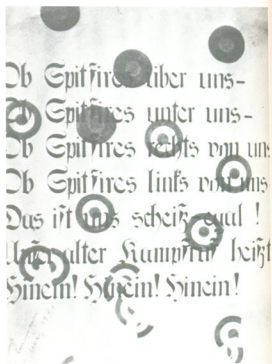 Ob Spitfires über uns-
Ob Spitfires unter uns-
Ob Spitfires rechts von uns
Ob Spitfires links von uns
Das ist uns scheiß egal!
Unser alter Kampfruf heißt
Hinein! Hinein! Hinein!